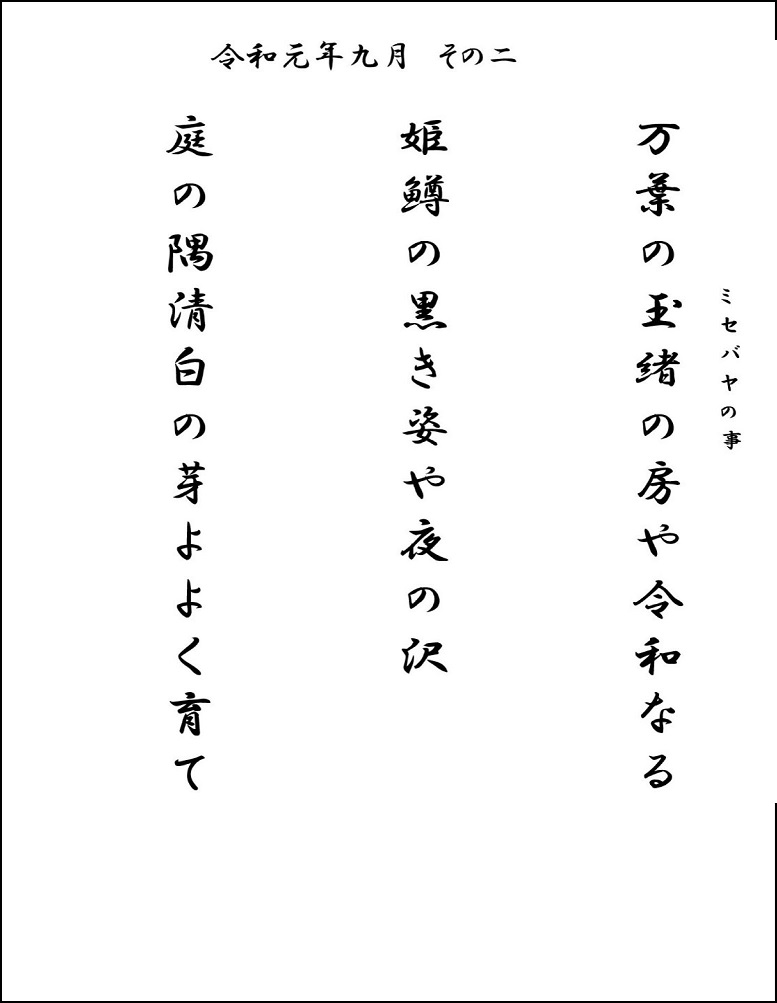 令和元年九月　その二
ミセバヤの事
万葉の玉緒の房や令和なる
姫鱒の黒き姿や夜の沢
庭の隅清白の芽よよく育て